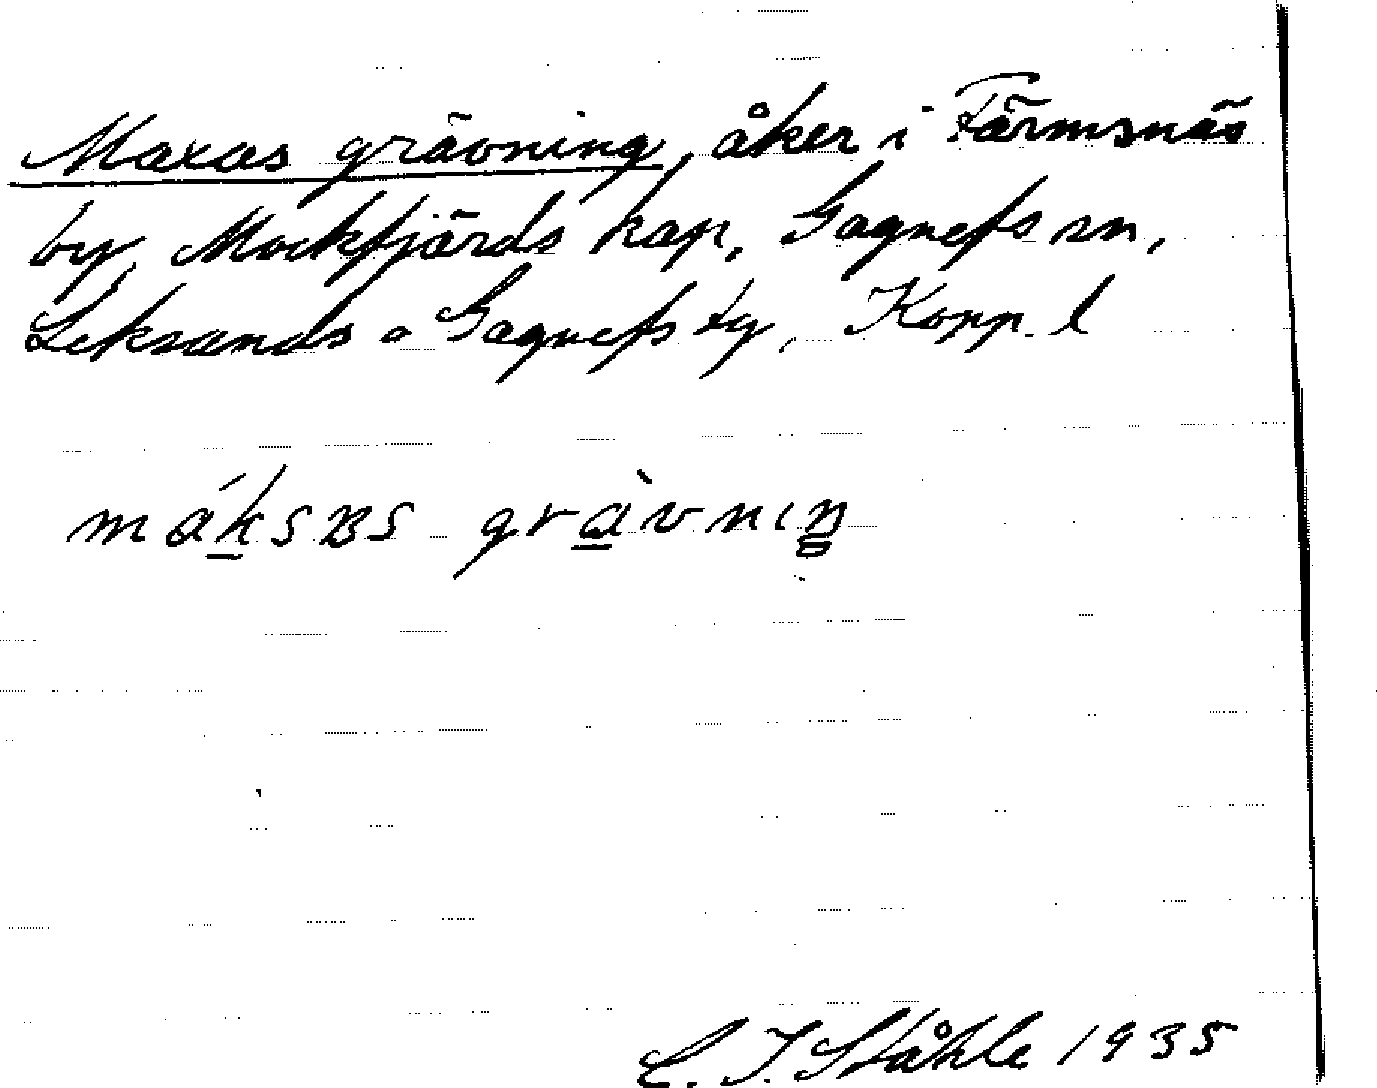 Maxas grävning, åker i Färmsnäs
by, Mockfjärds kap, Gagnefs sn,
Leksands o Gagnefs tg, Kopp. l
máksɐs grävnıŋ
C. I. Ståhle 1935